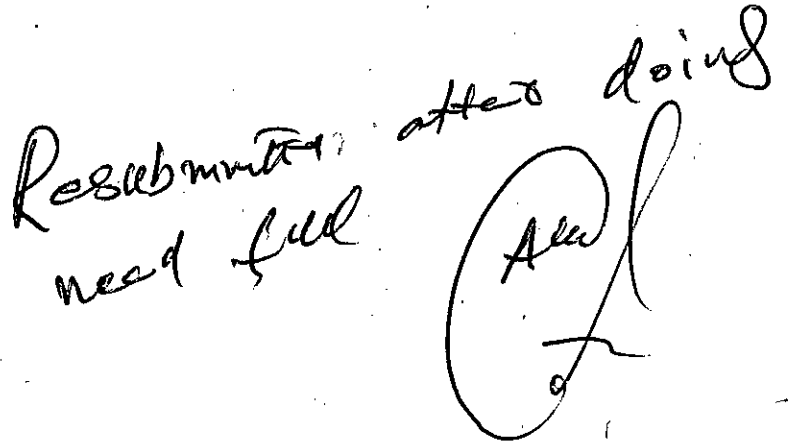 Resubmitted after doing
need ful